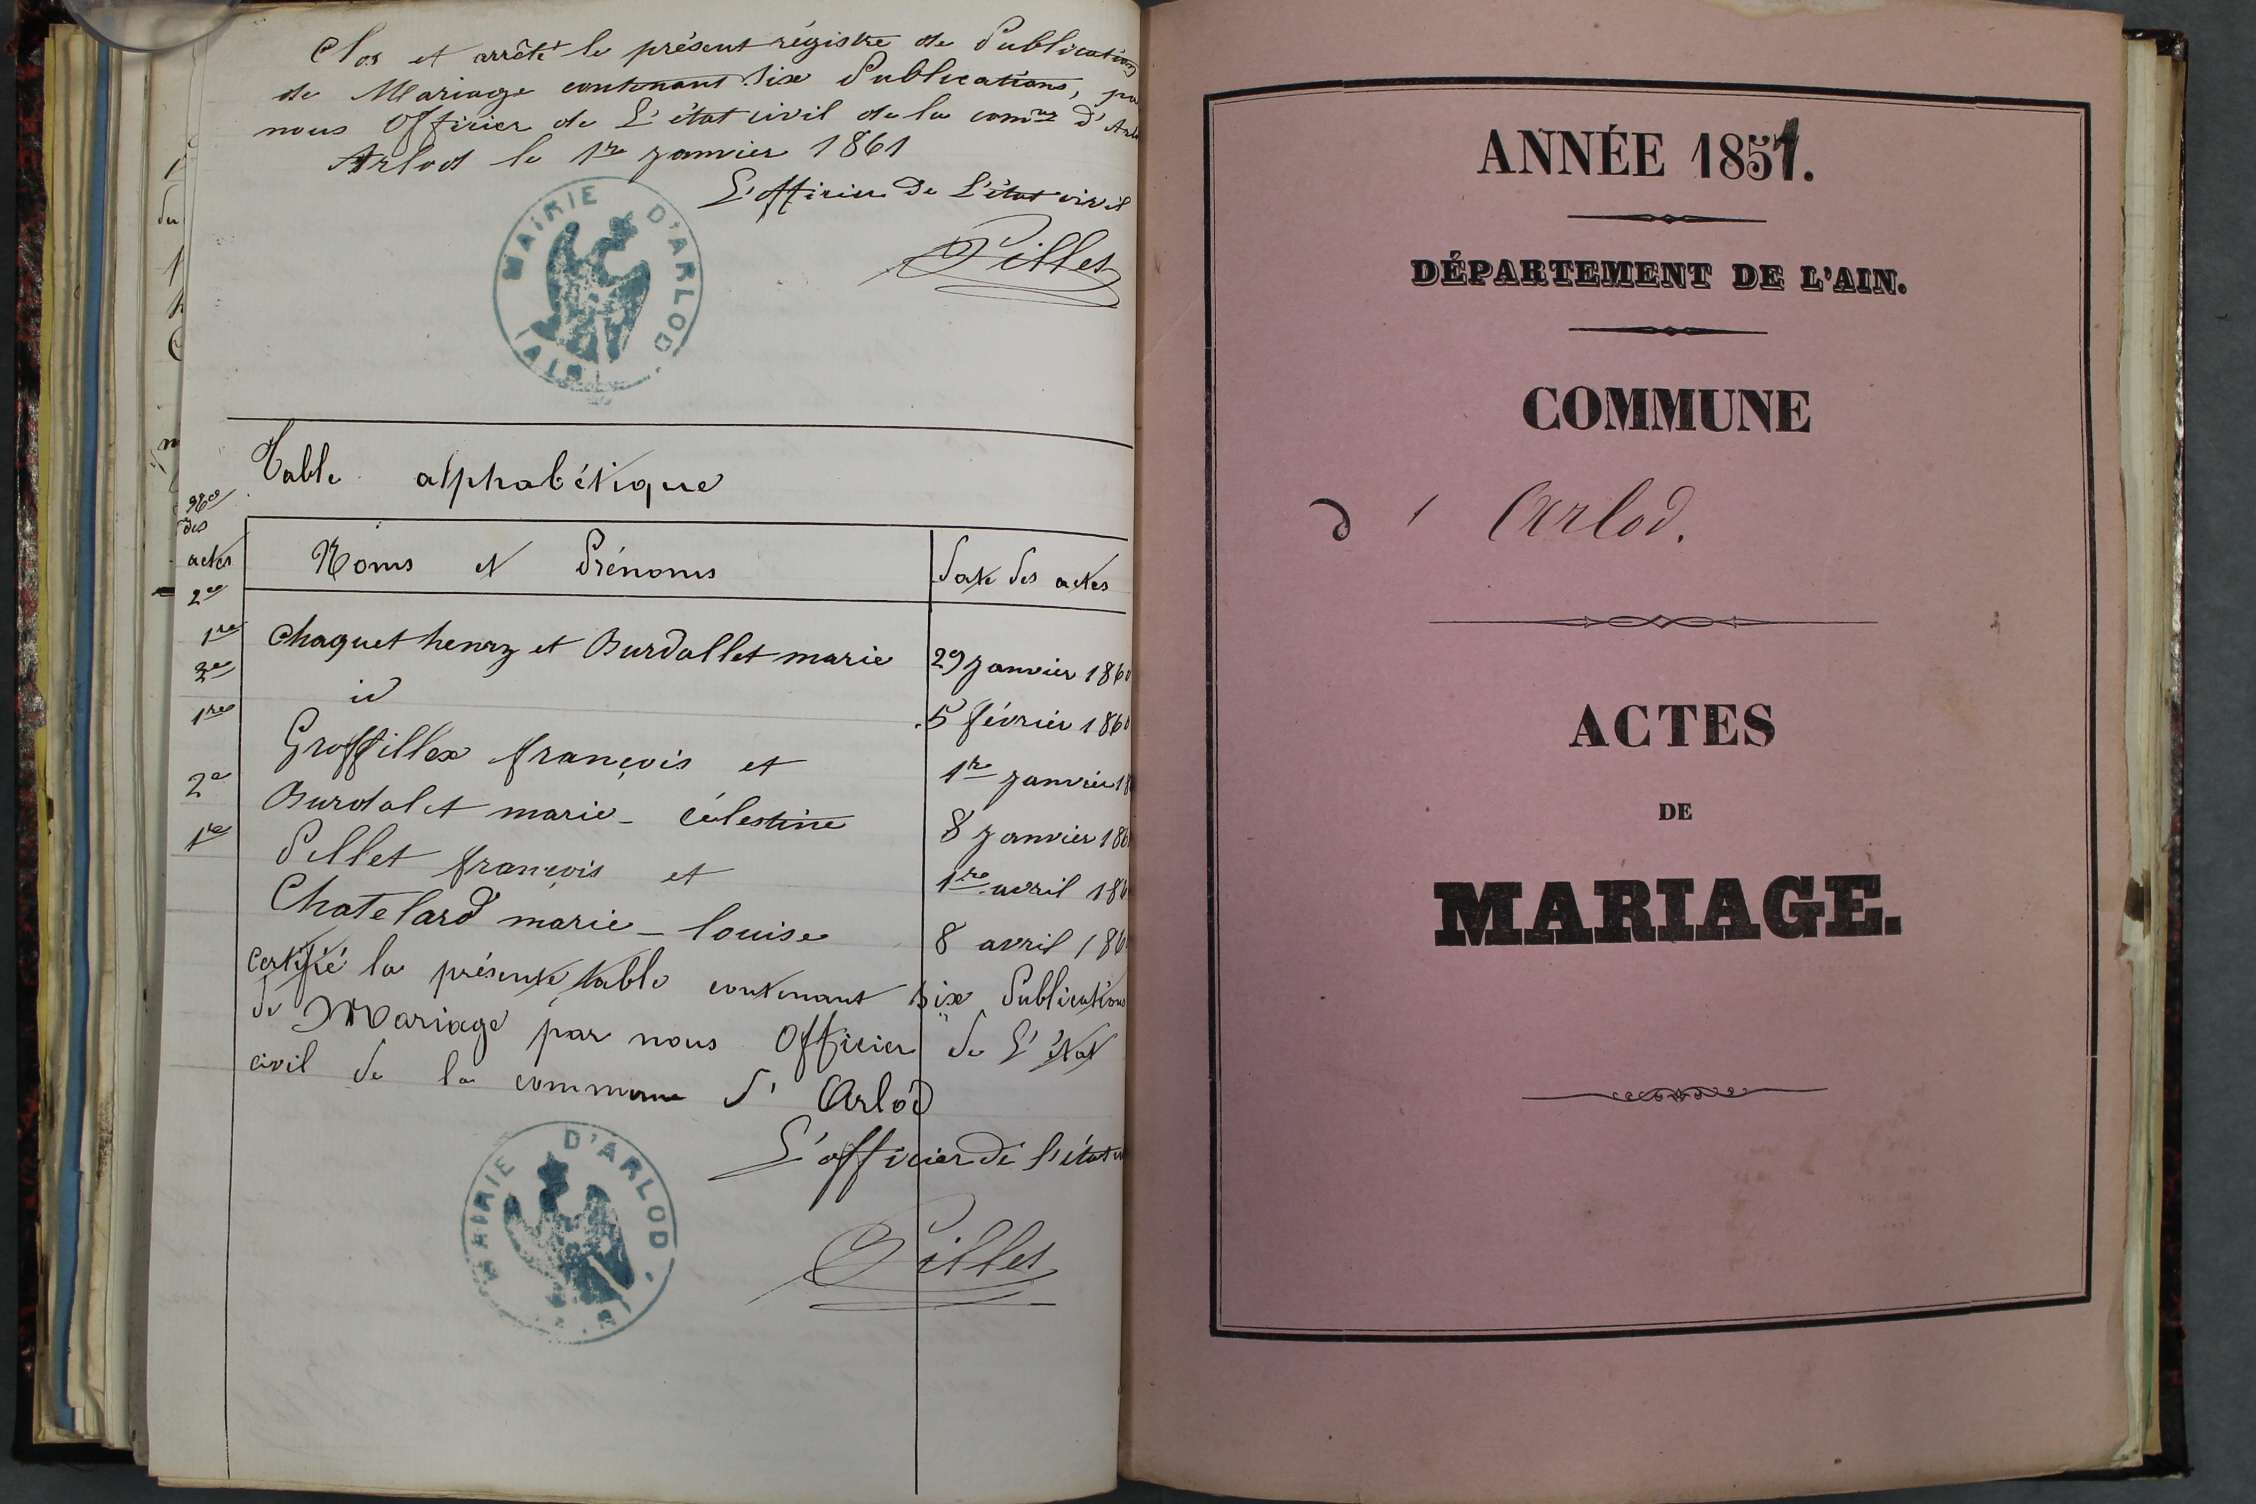 Clos et arrêté le présent régistre de Publication
de Mariage contenant six Publications, pa
nous Officier de L'état civil de la comne d'Arlo
Arlod le 1re janvier 1861
L'officier de L'état civil
Pillet
MAIRIE D'ARLOD
(AIN)
Table alphabétique
Nos
des
actes
Noms et Prénoms
Date des actes
2e
1re
Chaquet henry et Burdallet marie
29 janvier 1860
2e
id
5 février 1860
1re
Groffillex françois et
1re janvier 18
2e
Burdalet marie-célestine
8 janvier 186
1re
Pillet françois et
1re avril 186
Chatelard marie-louise
8 avril 186
certifié la présente table contenant six Publications
de Mariage par nous Officier de L'état
civil de la commune d'Arlod
L'officier de l'état
Pillet
MAIRIE D'ARLOD
ANNÉE 1851.
DÉPARTEMENT DE L'AIN.
COMMUNE
d' Arlod.
ACTES
DE
MARIAGE.